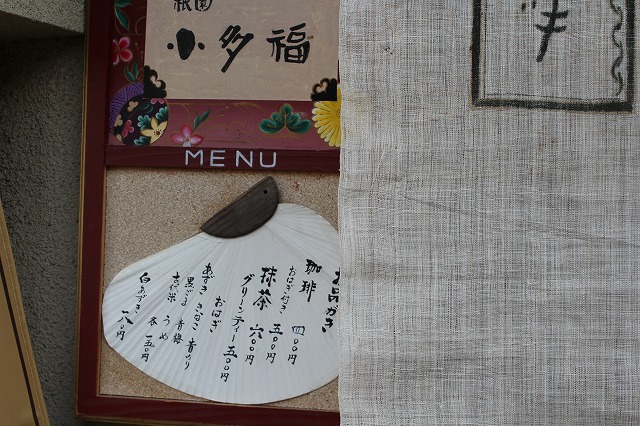 祇園
小多福
MENU
お品がき
珈琲 四〇〇円
おはぎ付き
抹茶 五〇〇円
グリーンティー 六〇〇円
五〇〇円
おはぎ
あずき きなこ 青のり
黒ごま 青梅
古代米 うめ
各 一五〇円
白あずき 一八〇円